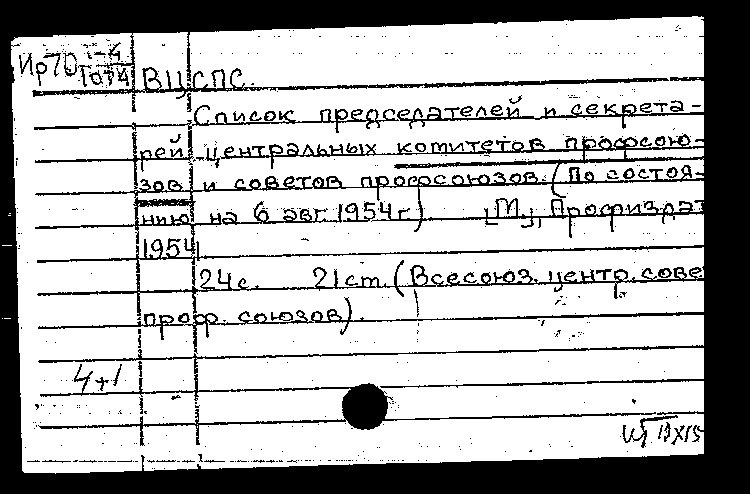 Ир70 1-4
1074 ВЦСПС.
Список председателей и секрета-
рей центральных комитетов профсою-
зов и советов профсоюзов. (По состоя-
нию на 6 авг. 1954 г.) [М.], Профиздат
1954
24 с. 21 см. (Всесоюз. центр. сове
проф. союзов).
4+1